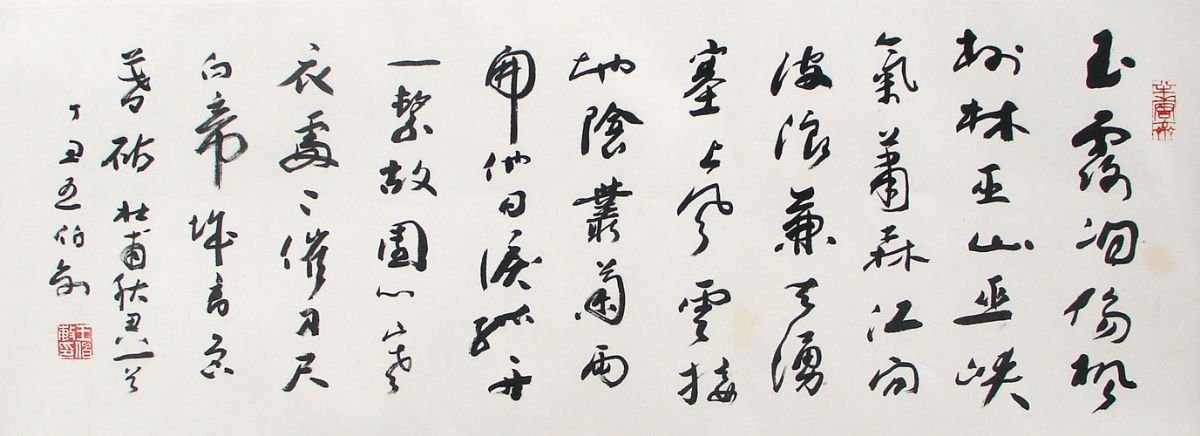 半唐齋
玉露凋傷楓
樹林巫山巫峽
氣蕭森江間
波浪兼天湧
塞上風雲接
地陰叢菊兩
開他日淚孤舟
一繫故園心寒
衣處〻催刀尺
白帝城高急
暮砧 杜甫秋興一首
丁丑王伯敏
王伯敏印